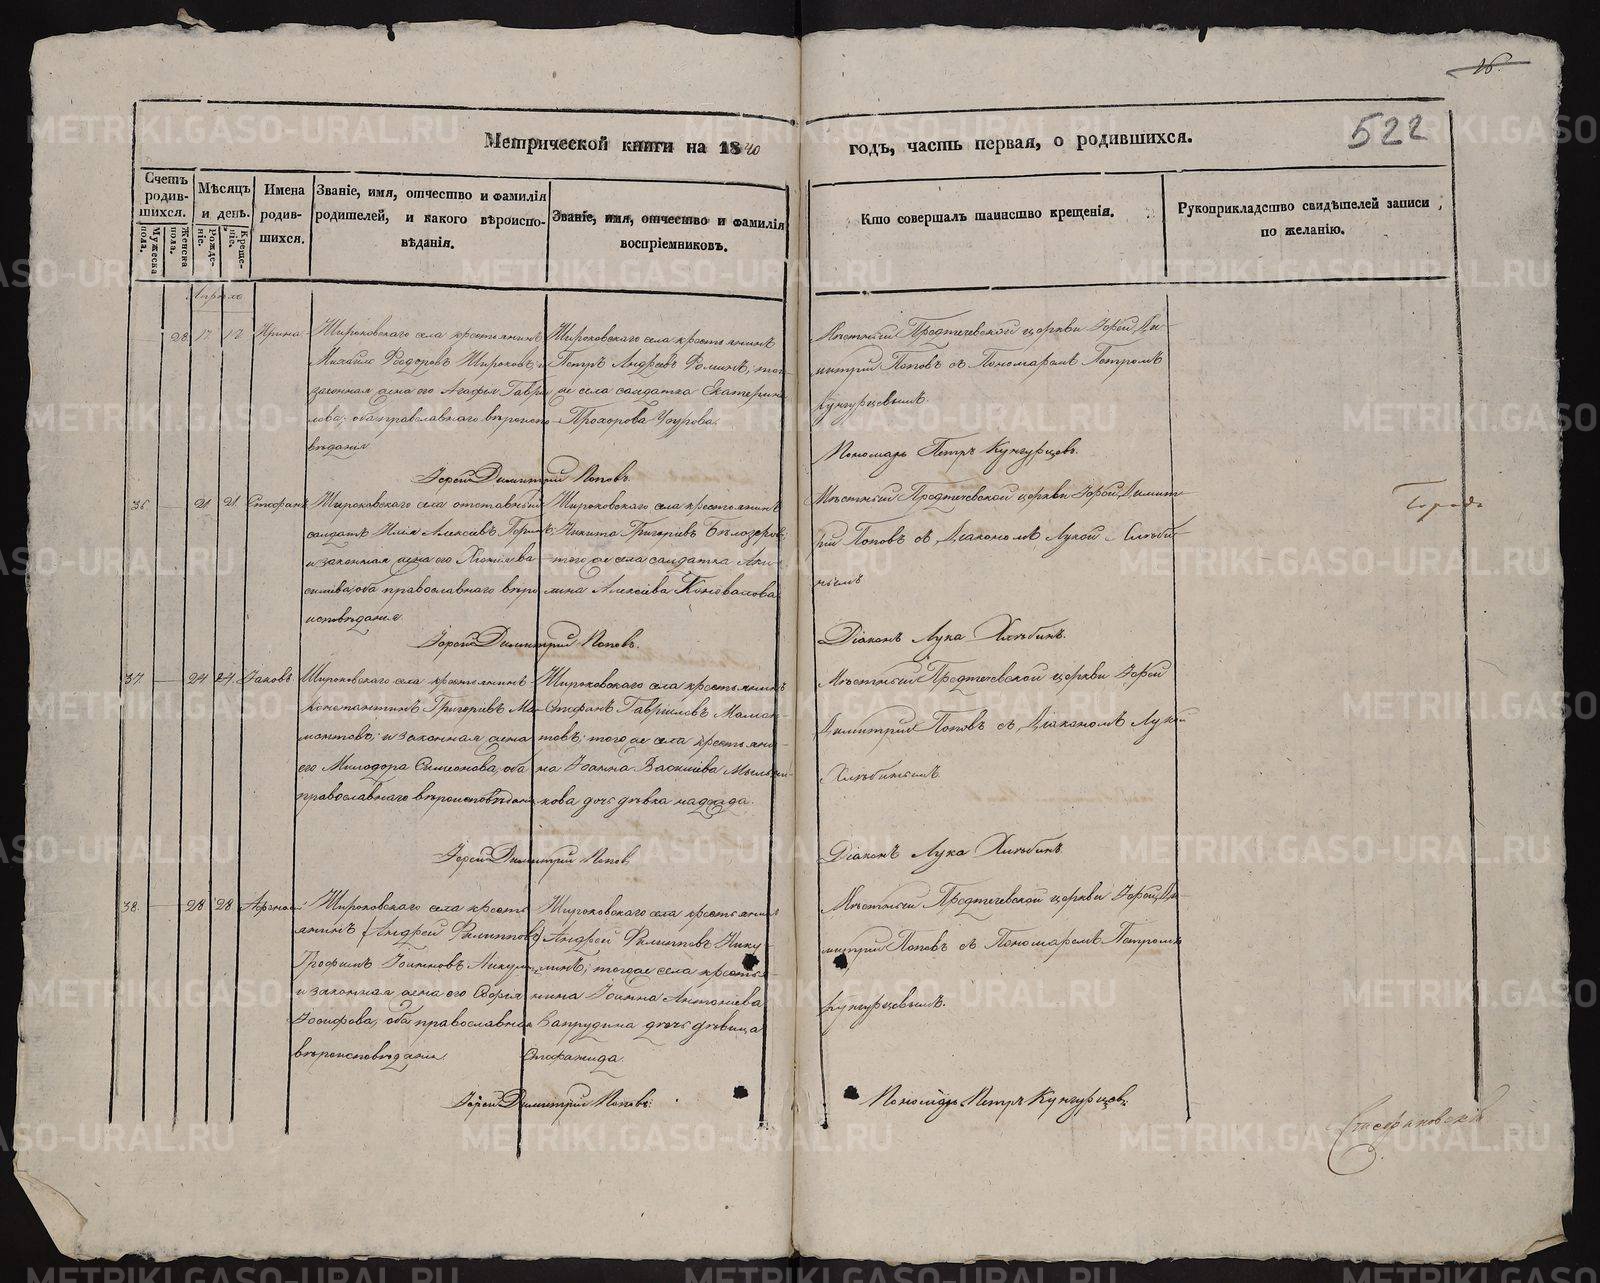 16.
522
Метрической книги на 1840
годъ, часть первая, о родившихся.
Счетъ родив-шихся.
Мужеска пола.
Женска пола.
Мѣсяцъ и день.
Рожде-ніе.
Креще-ніе.
Имена родив-шихся.
Званіе, имя, отчество и фамилія
родителей, и какого вѣроиспо-
вѣданія.
Званіе, имя, отчество и фамилія
воспріемниковъ.
Кто совершалъ таинство крещенія.
Рукоприкладство свидѣтелей записи
по желанію.
Апрель
28. 17. 17. Ирина.
Широковскаго села крестьянинъ
Михайло Ѳеодоровъ Широковъ; и
законная жена его Агафья Гаври
лова; оба православнаго вѣроиспо
вѣданія
Широковскаго села крестьянинъ
Петръ Андреевъ Ѳоминъ; того
же села салдатка Екатерина
Прохорова
Мѣстный Предтечевской церкви Іерей Ди-
митрий Поповъ съ Пономаремъ Петромъ
Кунгурцевымъ.
Пономарь Петръ Кунгурцевъ.
Іерей Димитрий Поповъ.
36 — 21 21 Стефанъ
Широковскаго села отставный
салдатъ Илья Алексѣевъ
и законная жена его
оба православнаго вѣро
исповѣдания
Широковскаго села крестьянинъ
Никита Григорьевъ Бѣлозеровъ;
того же села салдатка Аку-
лина Алексѣева Коновалова
Мѣстный Предтечевской церкви Іерей Димит-
рий Поповъ съ Діакономъ Лукой Хлѣби-
нымъ
Діаконъ Лука Хлѣбинъ.
Іерей Димитрий Поповъ.
37. — 24 24. Іаковъ
Широковскаго села крестьянинъ
Константинъ Григорьевъ Ма-
монтовъ; и законная жена
его Милодора Симеонова, оба
православнаго вѣроисповѣдания
Широковскаго села крестьянинъ
Стефанъ Гавриловъ Мамон-
товъ; того же села крестьяни-
на Іоанна Василиева Мыльни-
кова дочь дѣвка надежда.
Мѣстный Предтечевской церкви Іерей
Димитрий Поповъ съ Діакономъ Лукой
Хлѣбинымъ
Діаконъ Лука Хлѣбинъ
Іерей Димитрий Поповъ.
38. — 28 28 Афанасій
Широковскаго села кресть
янинъ (Андрей Филипповъ)
Трофимъ Іоанновъ Никулинъ
и законная жена его Софія
Іосифова, оба православнаго
вѣроисповѣдания
Широковскаго села крестьянинъ
Андрей Филипповъ Нику-
линъ; тогоже села крестья-
нина Іоанна Антониева
Запрудина дочь дѣвица
Стефанида.
Мѣстный Предтечевской церкви Іерей Ди-
митрий Поповъ съ Пономаремъ Петромъ
Кунгурцевымъ.
Іерей Димитрий Поповъ.
Пономарь Петръ Кунгурцевъ.
METRIKI.GASO-URAL.RU